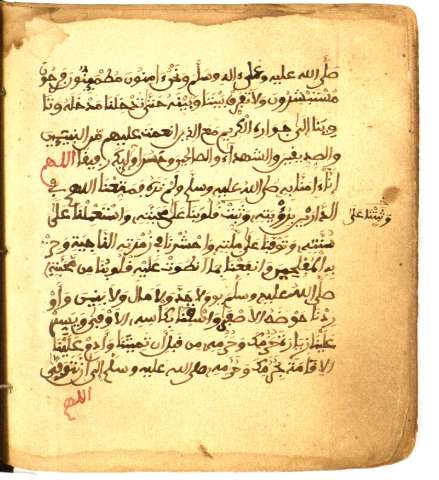 صلى الله عليه وعلى اله وسلم ونحن امنون مطمئنون فرحون
مستبشرون ولا تفرق بيننا وبينه حتى تدخلنا مدخله وتا
وينا الى جواره الكريم مع الذين انعمت عليهم من النبيين
والصديقين والشهداء والصالحين وحسن اولئك رفيقا اللهم
انا ءامنا به صلى الله عليه وسلم ولم نره فمتعنا اللهم في
الدارين برؤيته وثبت قلوبنا على محبته واستعملنا على
وثبتنا على
سنته وتوفنا على ملته واحشرنا في زمرته الناجية وحز
به المفلحين وانفعنا بما انطوت عليه قلوبنا من محبته
صلى الله عليه وسلم يوم لا جد ولا مال ولا بنين واو
ردنا حوضه الاصفى واسقنا بكاسه الاوفى ويسر
علينا زيارة حرمك وحرمه من قبل ان تميتنا وادم علينا
الاقامة بحرمك وحرمه صلى الله عليه وسلم الى ان نتوفى
اللهم